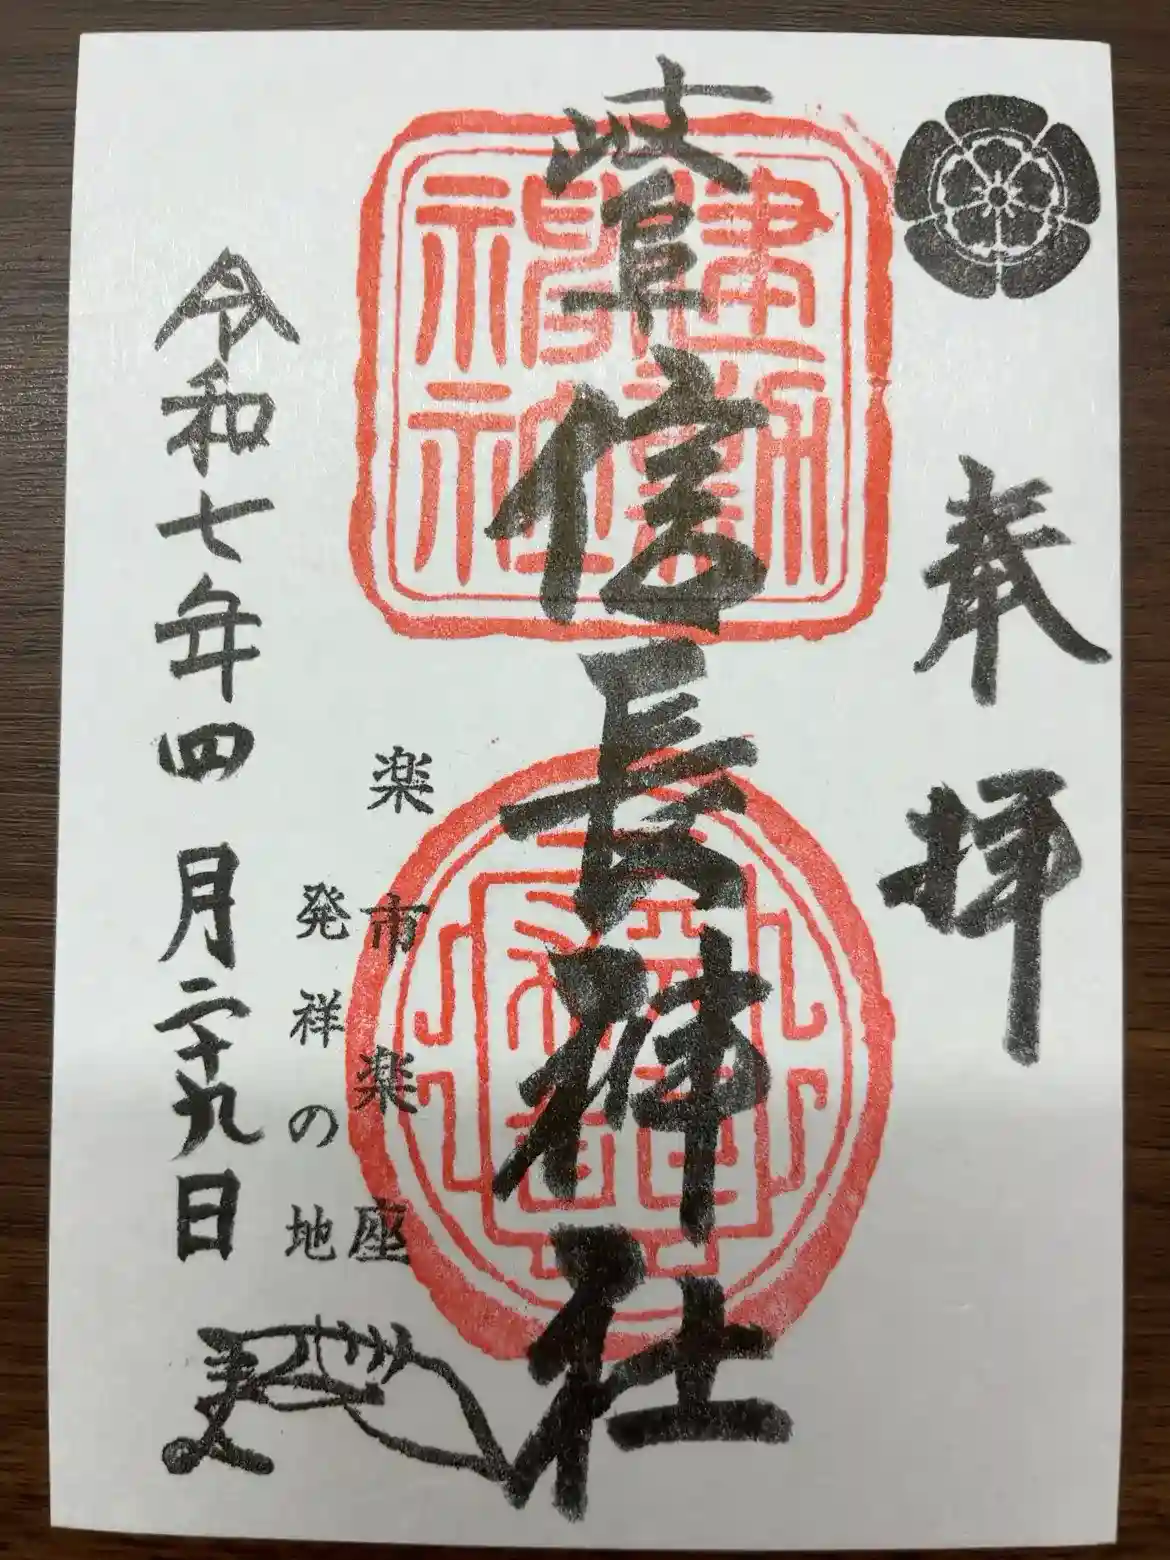 奉拝
岐阜信長神社
建勲神社
楽市楽座
発祥の地
令和七年四月二十九日